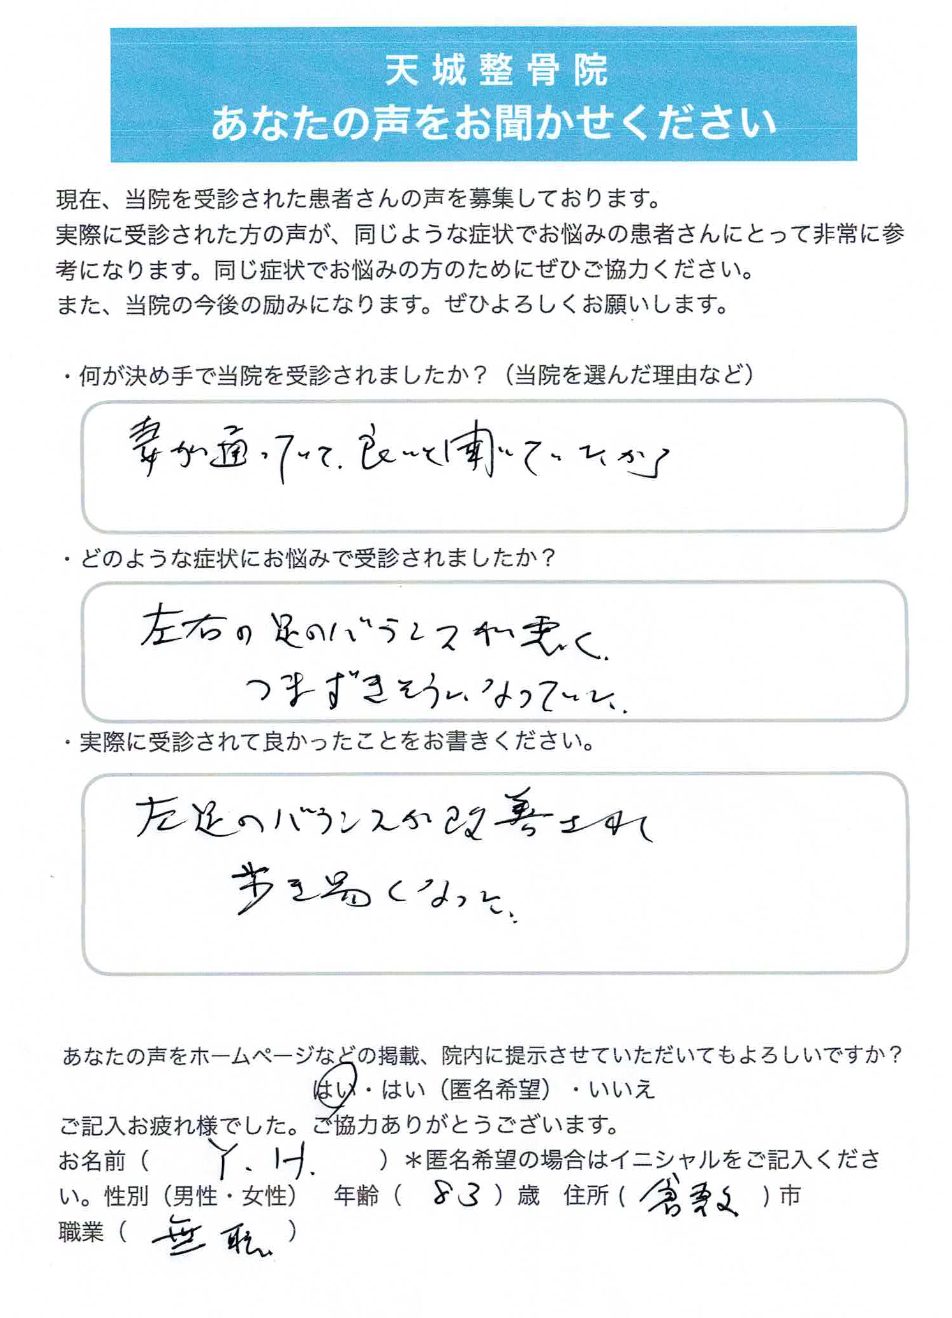 天城整骨院
あなたの声をお聞かせください
現在、当院を受診された患者さんの声を募集しております。
実際に受診された方の声が、同じような症状でお悩みの患者さんにとって非常に参
考になります。同じ症状でお悩みの方のためにぜひご協力ください。
また、当院の今後の励みになります。ぜひよろしくお願いします。
・何が決め手で当院を受診されましたか？（当院を選んだ理由など）
妻が通っていて、良いと聞いていたから
・どのような症状にお悩みで受診されましたか？
左右の足のバランスが悪く、
つまずきそうになっていた。
・実際に受診されて良かったことをお書きください。
左足のバランスが改善され
歩き易くなった。
あなたの声をホームページなどの掲載、院内に提示させていただいてもよろしいですか？
はい・はい（匿名希望）・いいえ
ご記入お疲れ様でした。ご協力ありがとうございます。
お名前（ Y.H. ）＊匿名希望の場合はイニシャルをご記入くださ
い。性別（男性・女性） 年齢（ 83 ）歳 住所( 倉敷 )市
職業（ 無職 ）